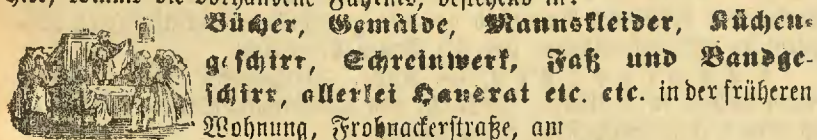 Bücher, Gemälde, Mannskleider, Küchen-
geschirr, Schreinwerk, Faß und Bandge-
schirr, allerlei Hausrat etc. etc. in der früheren
Wohnung, Frohnackerstraße, am